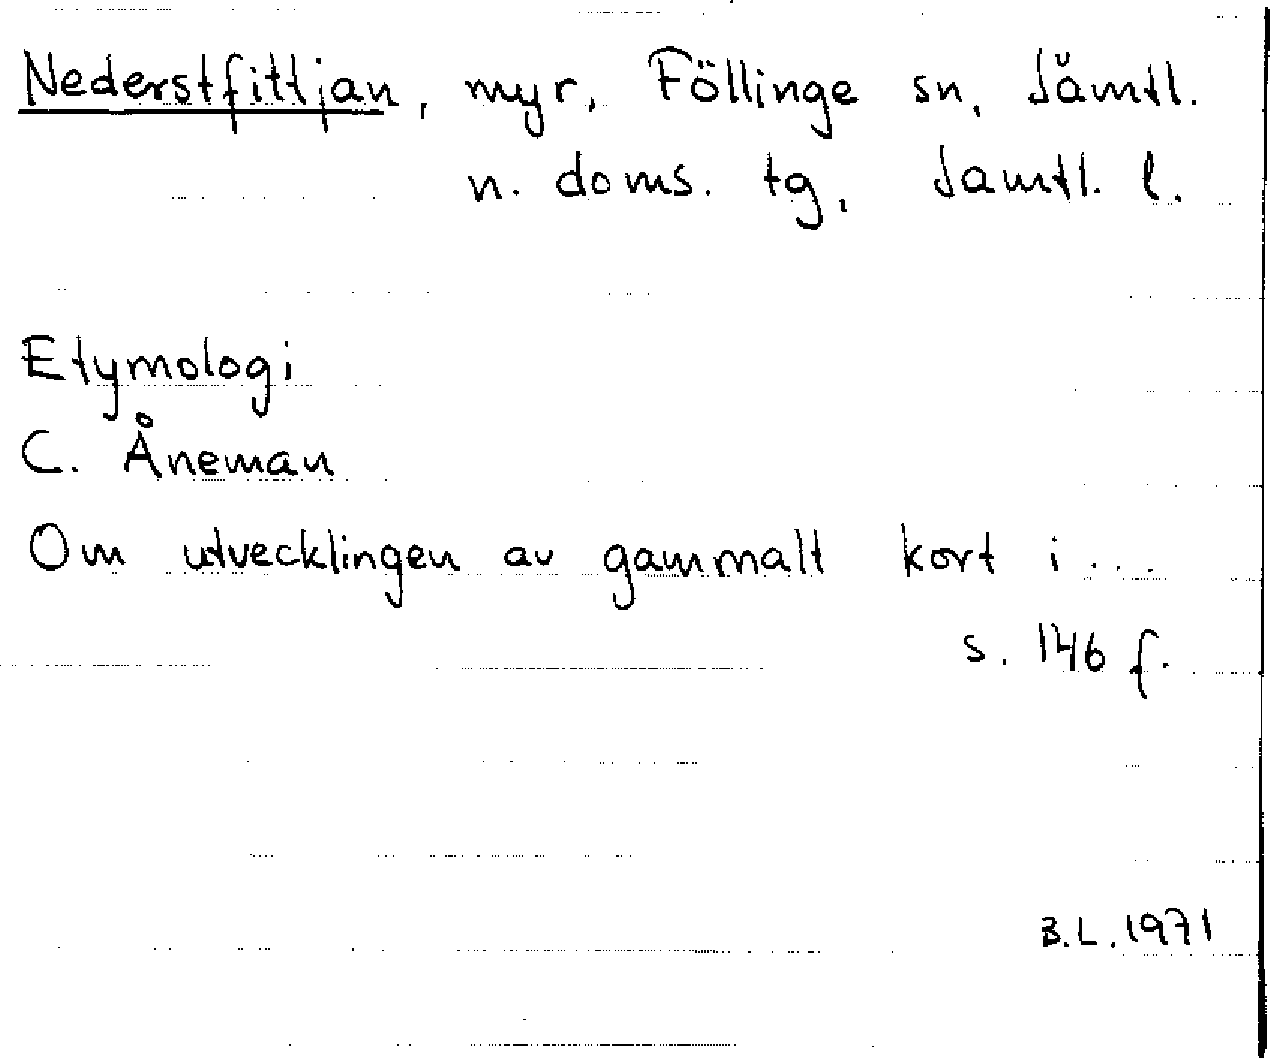 Nederstfittjan, myr, Föllinge sn, Jämtl.
n. doms. tg, Jamtl. l.
Etymologi
C. Åneman
Om utvecklingen av gammalt kort i...
s. 146 f.
B.L. 1971